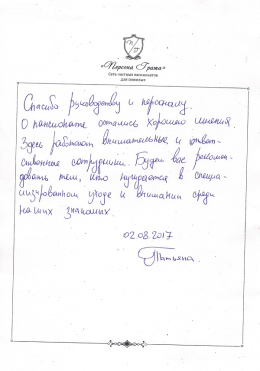 «Персона Грата»
Сеть частных пансионатов
для пожилых
Спасибо руководству и персоналу.
О пансионате остались хорошего мнения.
Здесь работают внимательные и ответ-
ственные сотрудники. Будем вас рекомен-
довать тем, кто нуждается в специа-
лизированном уходе и внимании среди
наших знакомых.
02.08.2017
Татьяна.